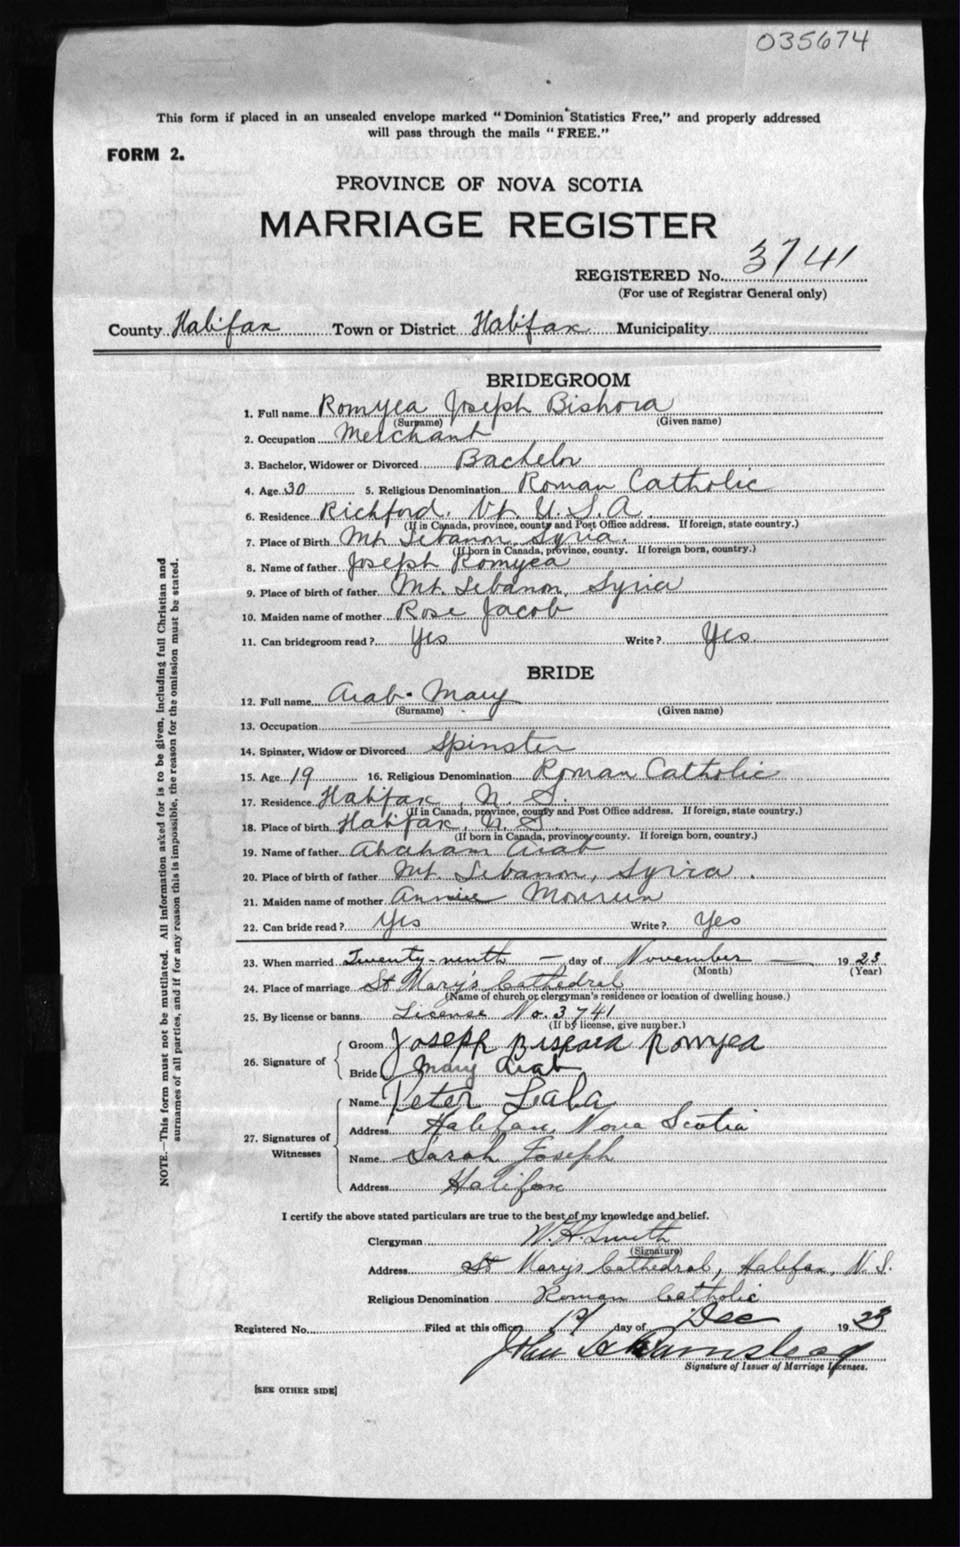 035674
This form if placed in an unsealed envelope marked "Dominion Statistics Free," and properly addressed
will pass through the mails "FREE."
FORM 2.
PROVINCE OF NOVA SCOTIA
MARRIAGE REGISTER
REGISTERED No. 3741
(For use of Registrar General only)
County Halifax Town or District Halifax Municipality
BRIDEGROOM
1. Full name Romyea Joseph Bishora
(Surname) (Given name)
2. Occupation Merchant
3. Bachelor, Widower or Divorced Bachelor
4. Age 30 5. Religious Denomination Roman Catholic
6. Residence Richford. Vt. U.S.A.
(If in Canada, province, county and Post Office address. If foreign, state country.)
7. Place of Birth Mt. Lebanon, Syria.
(If born in Canada, province, county. If foreign born, country.)
8. Name of father Joseph Romyea
9. Place of birth of father Mt. Lebanon, Syria
10. Maiden name of mother Rose Jacob
11. Can bridegroom read? Yes Write? Yes.
BRIDE
12. Full name Arab - Mary
(Surname) (Given name)
13. Occupation
14. Spinster, Widow or Divorced Spinster
15. Age 19 16. Religious Denomination Roman Catholic
17. Residence Halifax, N. S.
(If in Canada, province, county and Post Office address. If foreign, state country.)
18. Place of birth Halifax, N. S.
(If born in Canada, province, county. If foreign born, country.)
19. Name of father Abraham Arab
20. Place of birth of father Mt. Lebanon, Syria.
21. Maiden name of mother Annie
22. Can bride read? Yes Write? Yes
23. When married Twenty-ninth — day of November — 1923
(Month) (Year)
24. Place of marriage St Mary's Cathedral
(Name of church or clergyman's residence or location of dwelling house.)
25. By license or banns. License No. 3741
(If by license, give number.)
26. Signature of
Groom Joseph Romyea
Bride Mary Arab
27. Signatures of Witnesses
Name Peter Laba
Address Halifax, Nova Scotia
Name Sarah Joseph
Address Halifax
I certify the above stated particulars are true to the best of my knowledge and belief.
Clergyman W. H. Smith
(Signature)
Address St Mary's Cathedral, Halifax, N. S.
Religious Denomination Roman Catholic
Registered No. Filed at this office day of Dec 1923
John
Signature of Issuer of Marriage Licenses.
[SEE OTHER SIDE]
NOTE.—This form must not be mutilated. All information asked for is to be given, including full Christian and
surnames of all parties, and if for any reason this is impossible, the reason for the omission must be stated.